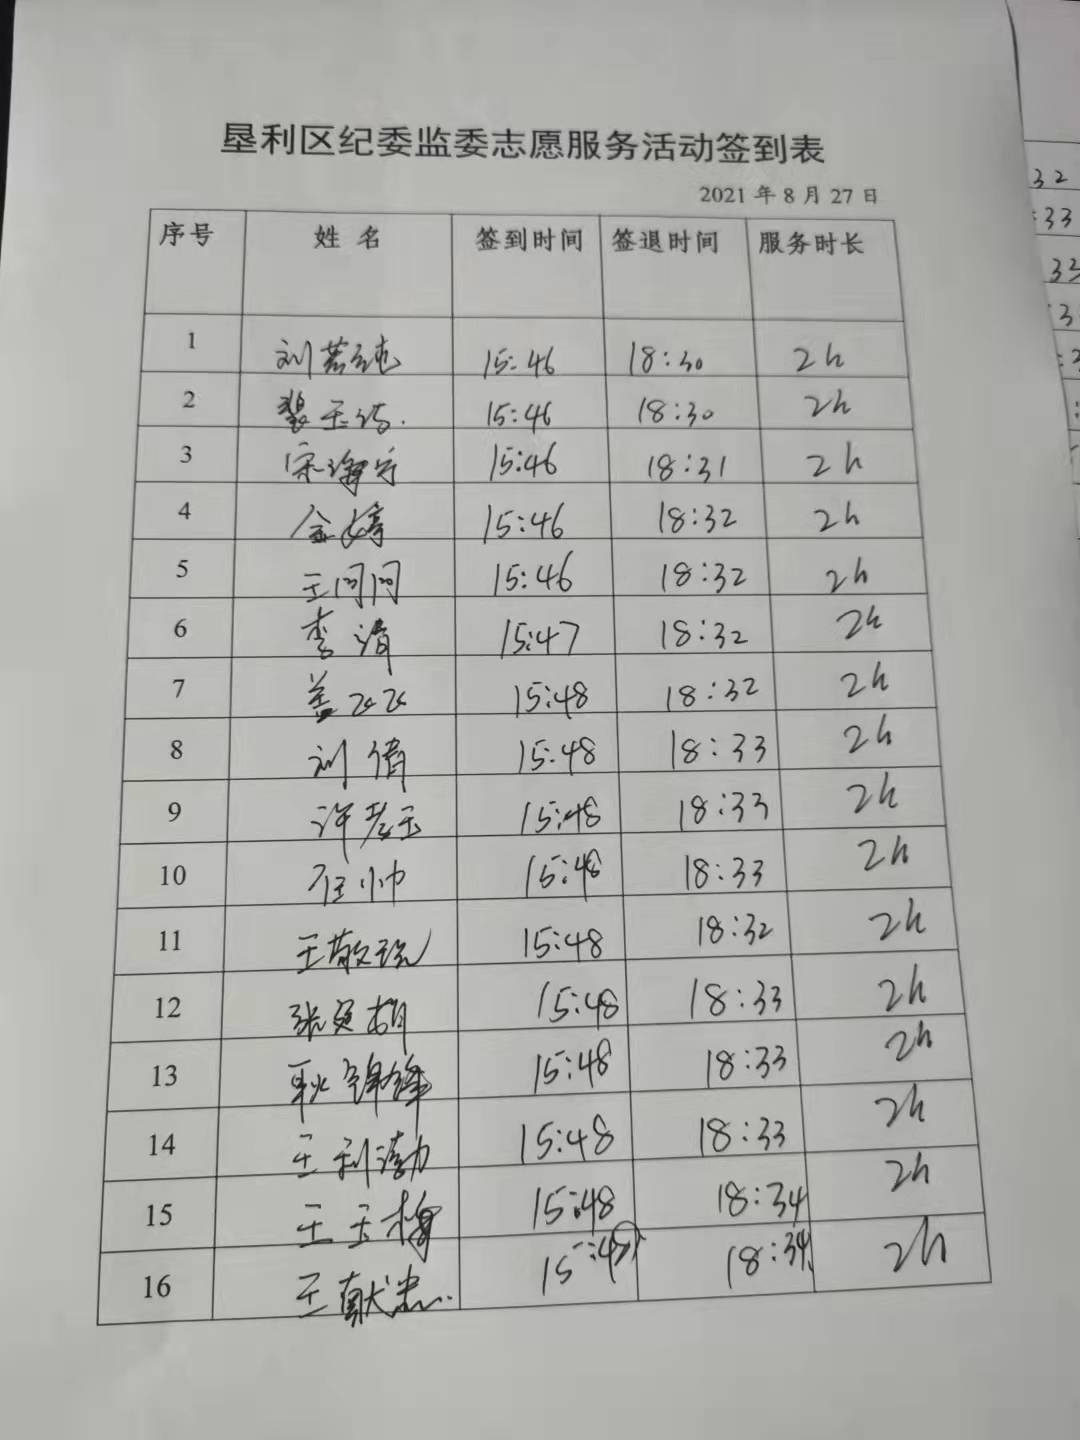 垦利区纪委监委志愿服务活动签到表
2021 年 8 月 27 日
序号 姓 名 签到时间 签退时间 服务时长
1 刘 15:46 18:30 2h
2 裴玉 15:46 18:30 2h
3 宋 15:46 18:31 2h
4 金婷 15:46 18:32 2h
5 王问问 15:46 18:32 2h
6 李清 15:47 18:32 2h
7 盖 15:48 18:32 2h
8 刘倩 15:48 18:33 2h
9 许 玉 15:48 18:33 2h
10 任帅 15:48 18:33 2h
11 王敬 15:48 18:32 2h
12 张 15:48 18:33 2h
13 耿锦锋 15:48 18:33 2h
14 王利勃 15:48 18:33 2h
15 王玉梅 15:48 18:34 2h
16 王献忠 18:34 2h
32
:33